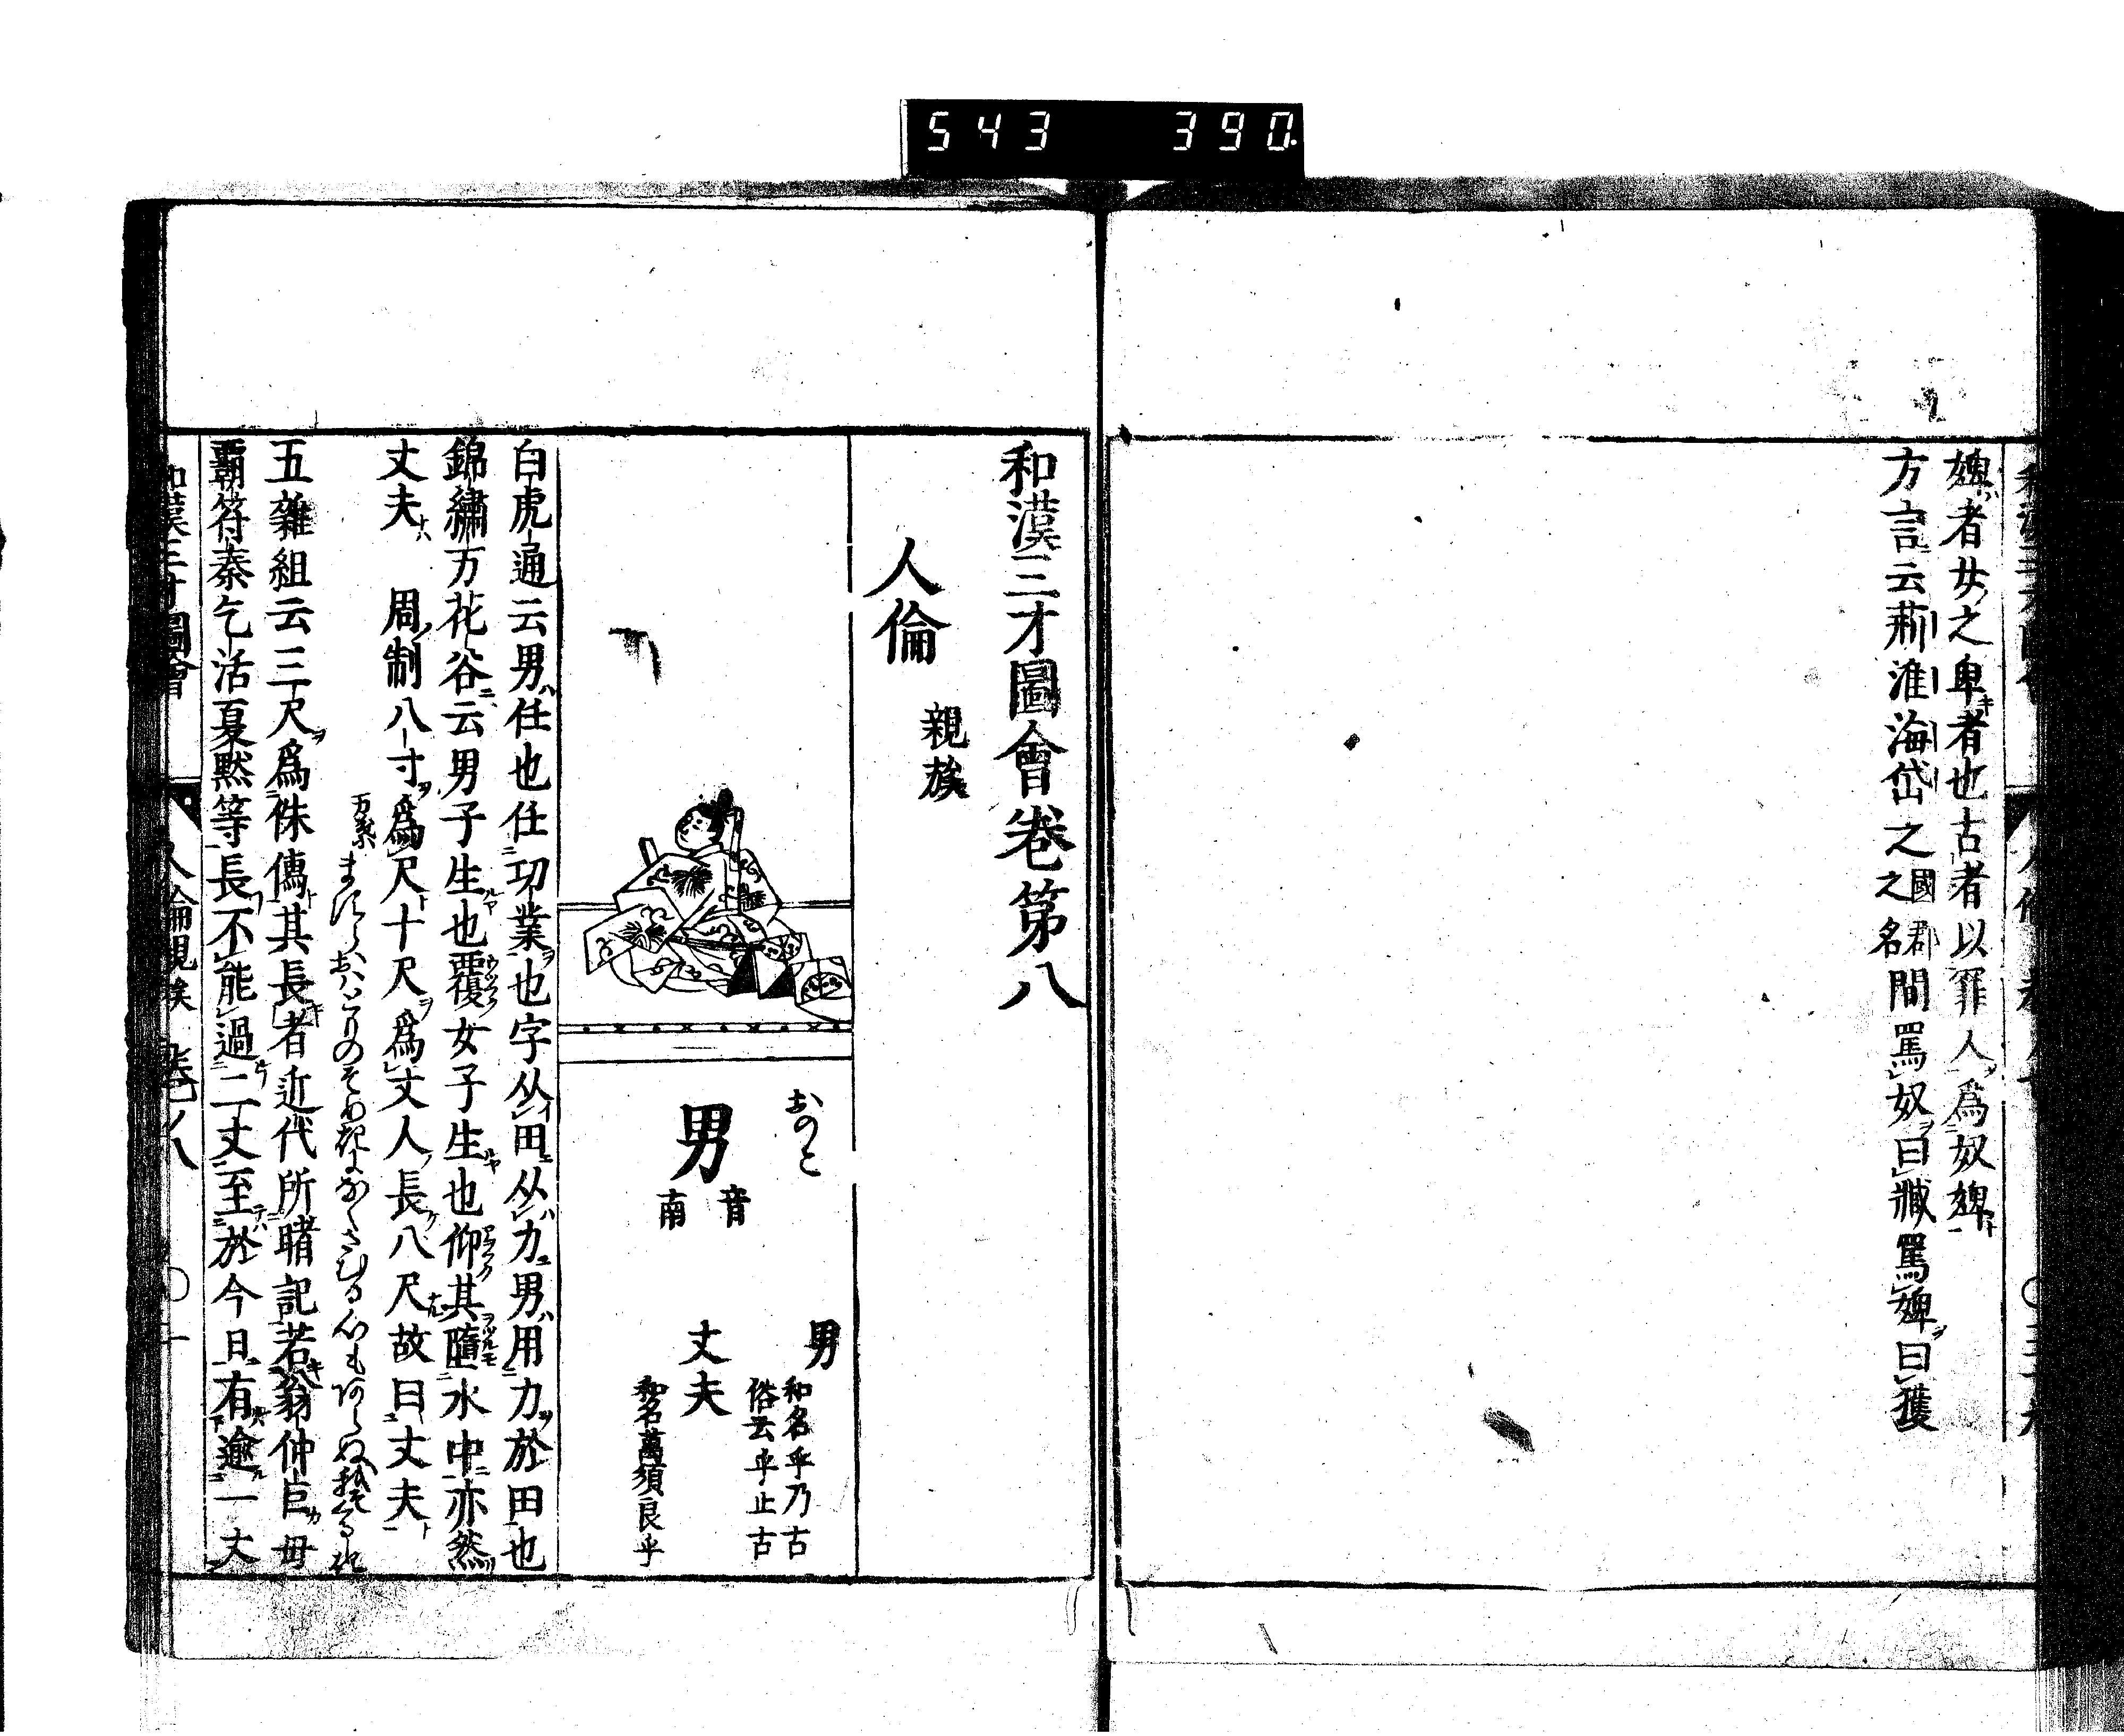 543 390
婢者女之卑者也古者以罪人為奴婢
方言云荊淮海岱之國郡之名間罵奴曰臧罵婢曰獲
和漢三才圖會卷第八
人倫 親族
おのこ
男 音南
男 和名乎乃古 俗云乎止古
丈夫 和名萬須良乎
白虎通云男任也任功業也字从田从力男用力於田也
錦繡万花谷云男子生也覆女子生也仰其隨水中亦然
丈夫 周制八寸為尺十尺為丈人長八尺故曰丈夫
万葉
五雜組云三尺為侏儒其長者近代所睹記若翁仲巨毋
霸符秦乞活夏默等長不能過二丈至於今日有逾一丈
和漢三才圖會 人倫親族 卷之八